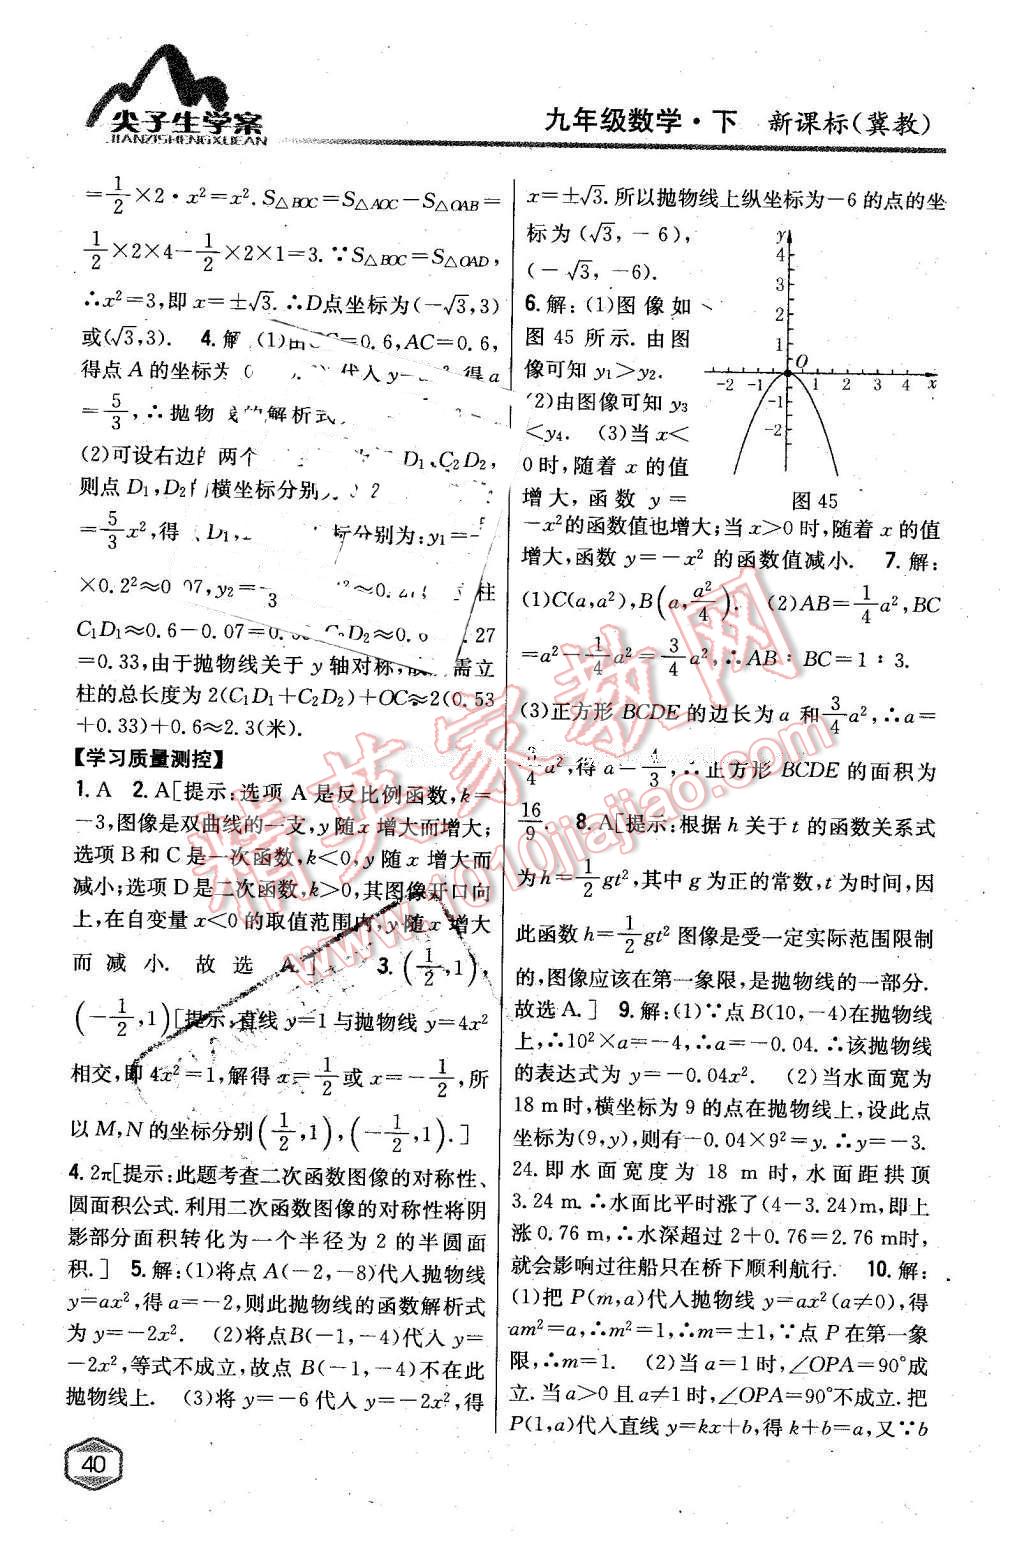 尖子生学案
JIANZISHENGXUEAN
九年级数学·下 新课标(冀教)
=1/2×2·x²=x².S△BOC=S△AOC−S△OAB=
1/2×2×4−1/2×2×1=3.∵S△BOC=S△OAD,
∴x²=3,即x=±√3.∴D点坐标为(−√3,3)
或(√3,3). 4.解:(1)由 =0.6,AC=0.6,
得点A的坐标为 代入y= 得a
=5/3,∴抛物线的解析式
(2)可设右边的两个 D₁、C₂D₂,
则点D₁,D₂的横坐标分别 2
=5/3x²,得 D₁, 标分别为:y₁=
×0.2²≈0.07,y₂= 3 柱
C₁D₁≈0.6−0.07=0. C₂D₂≈0.6 .27
=0.33,由于抛物线关于y轴对称, 需立
柱的总长度为2(C₁D₁+C₂D₂)+OC≈2(0.53
+0.33)+0.6≈2.3(米).
【学习质量测控】
1.A 2.A[提示:选项A是反比例函数,k=
−3,图像是双曲线的一支,y随x增大而增大;
选项B和C是一次函数,k<0,y随x增大而
减小;选项D是二次函数,k>0,其图像开口向
上,在自变量x<0的取值范围内,y随x增大
而减小.故选A.] 3.(1/2,1),
(−1/2,1)[提示:直线y=1与抛物线y=4x²
相交,即4x²=1,解得x=1/2或x=−1/2,所
以M,N的坐标分别(1/2,1),(−1/2,1).]
4.2π[提示:此题考查二次函数图像的对称性、
圆面积公式.利用二次函数图像的对称性将阴
影部分面积转化为一个半径为2的半圆面
积.] 5.解:(1)将点A(−2,−8)代入抛物线
y=ax²,得a=−2,则此抛物线的函数解析式
为y=−2x². (2)将点B(−1,−4)代入y=
−2x²,等式不成立,故点B(−1,−4)不在此
抛物线上. (3)将y=−6代入y=−2x²,得
40
x=±√3.所以抛物线上纵坐标为−6的点的坐
标为(√3,−6),
(−√3,−6).
6.解:(1)图像如
图45所示.由图
像可知y₁>y₂.
(2)由图像可知y₃
<y₄. (3)当x<
0时,随着x的值
增大,函数y=
y
4
3
2
1
O
−2 −1 1 2 3 4 x
−1
−2
图45
−x²的函数值也增大;当x>0时,随着x的值
增大,函数y=−x²的函数值减小. 7.解:
(1)C(a,a²),B(a,a²/4). (2)AB=1/4a²,BC
=a²−1/4a²=3/4a²,∴AB∶BC=1∶3.
(3)正方形BCDE的边长为a和3/4a²,∴a=
3/4a²,得a=4/3,∴正方形BCDE的面积为
16/9. 8.A[提示:根据h关于t的函数关系式
为h=1/2gt²,其中g为正的常数,t为时间,因
此函数h=1/2gt²图像是受一定实际范围限制
的,图像应该在第一象限,是抛物线的一部分.
故选A.] 9.解:(1)∵点B(10,−4)在抛物线
上,∴10²×a=−4,∴a=−0.04.∴该抛物线
的表达式为y=−0.04x². (2)当水面宽为
18 m时,横坐标为9的点在抛物线上,设此点
坐标为(9,y),则有−0.04×9²=y.∴y=−3.
24.即水面宽度为18 m时,水面距拱顶
3.24 m.∴水面比平时涨了(4−3.24)m,即上
涨0.76 m,∴水深超过2+0.76=2.76 m时,
就会影响过往船只在桥下顺利航行. 10.解:
(1)把P(m,a)代入抛物线y=ax²(a≠0),得
am²=a,∴m²=1,∴m=±1,∵点P在第一象
限,∴m=1. (2)当a=1时,∠OPA=90°成
立.当a>0且a≠1时,∠OPA=90°不成立.把
P(1,a)代入直线y=kx+b,得k+b=a,又∵b
精英家教网
www.1010jiajiao.com